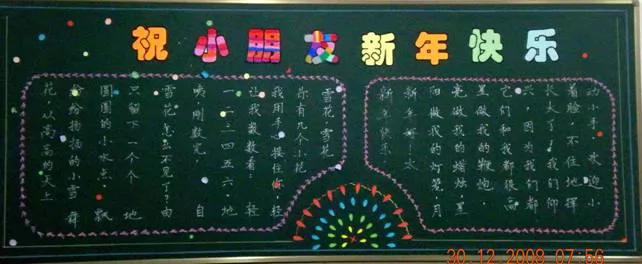 祝小朋友新年快乐
雪花,雪花
你有几个小花
我用手心接住你,轻
让我数数看:轻
一二三四五六.地
咦,刚数完,自
雪花怎么不见了?由
只留下一个个地
圆圆的小水点.飘
纷纷扬扬的小雪舞
花,从高高的天上
新年快乐!
新年好!太
阳做我的灯笼,月
亮做我的蜡烛,星
星做我的鞭炮.
它们和我都很高
兴,因为我们都
长大了!我们仰
着脸,不住地挥
动小手,欢迎小
30.12.2008 07:56